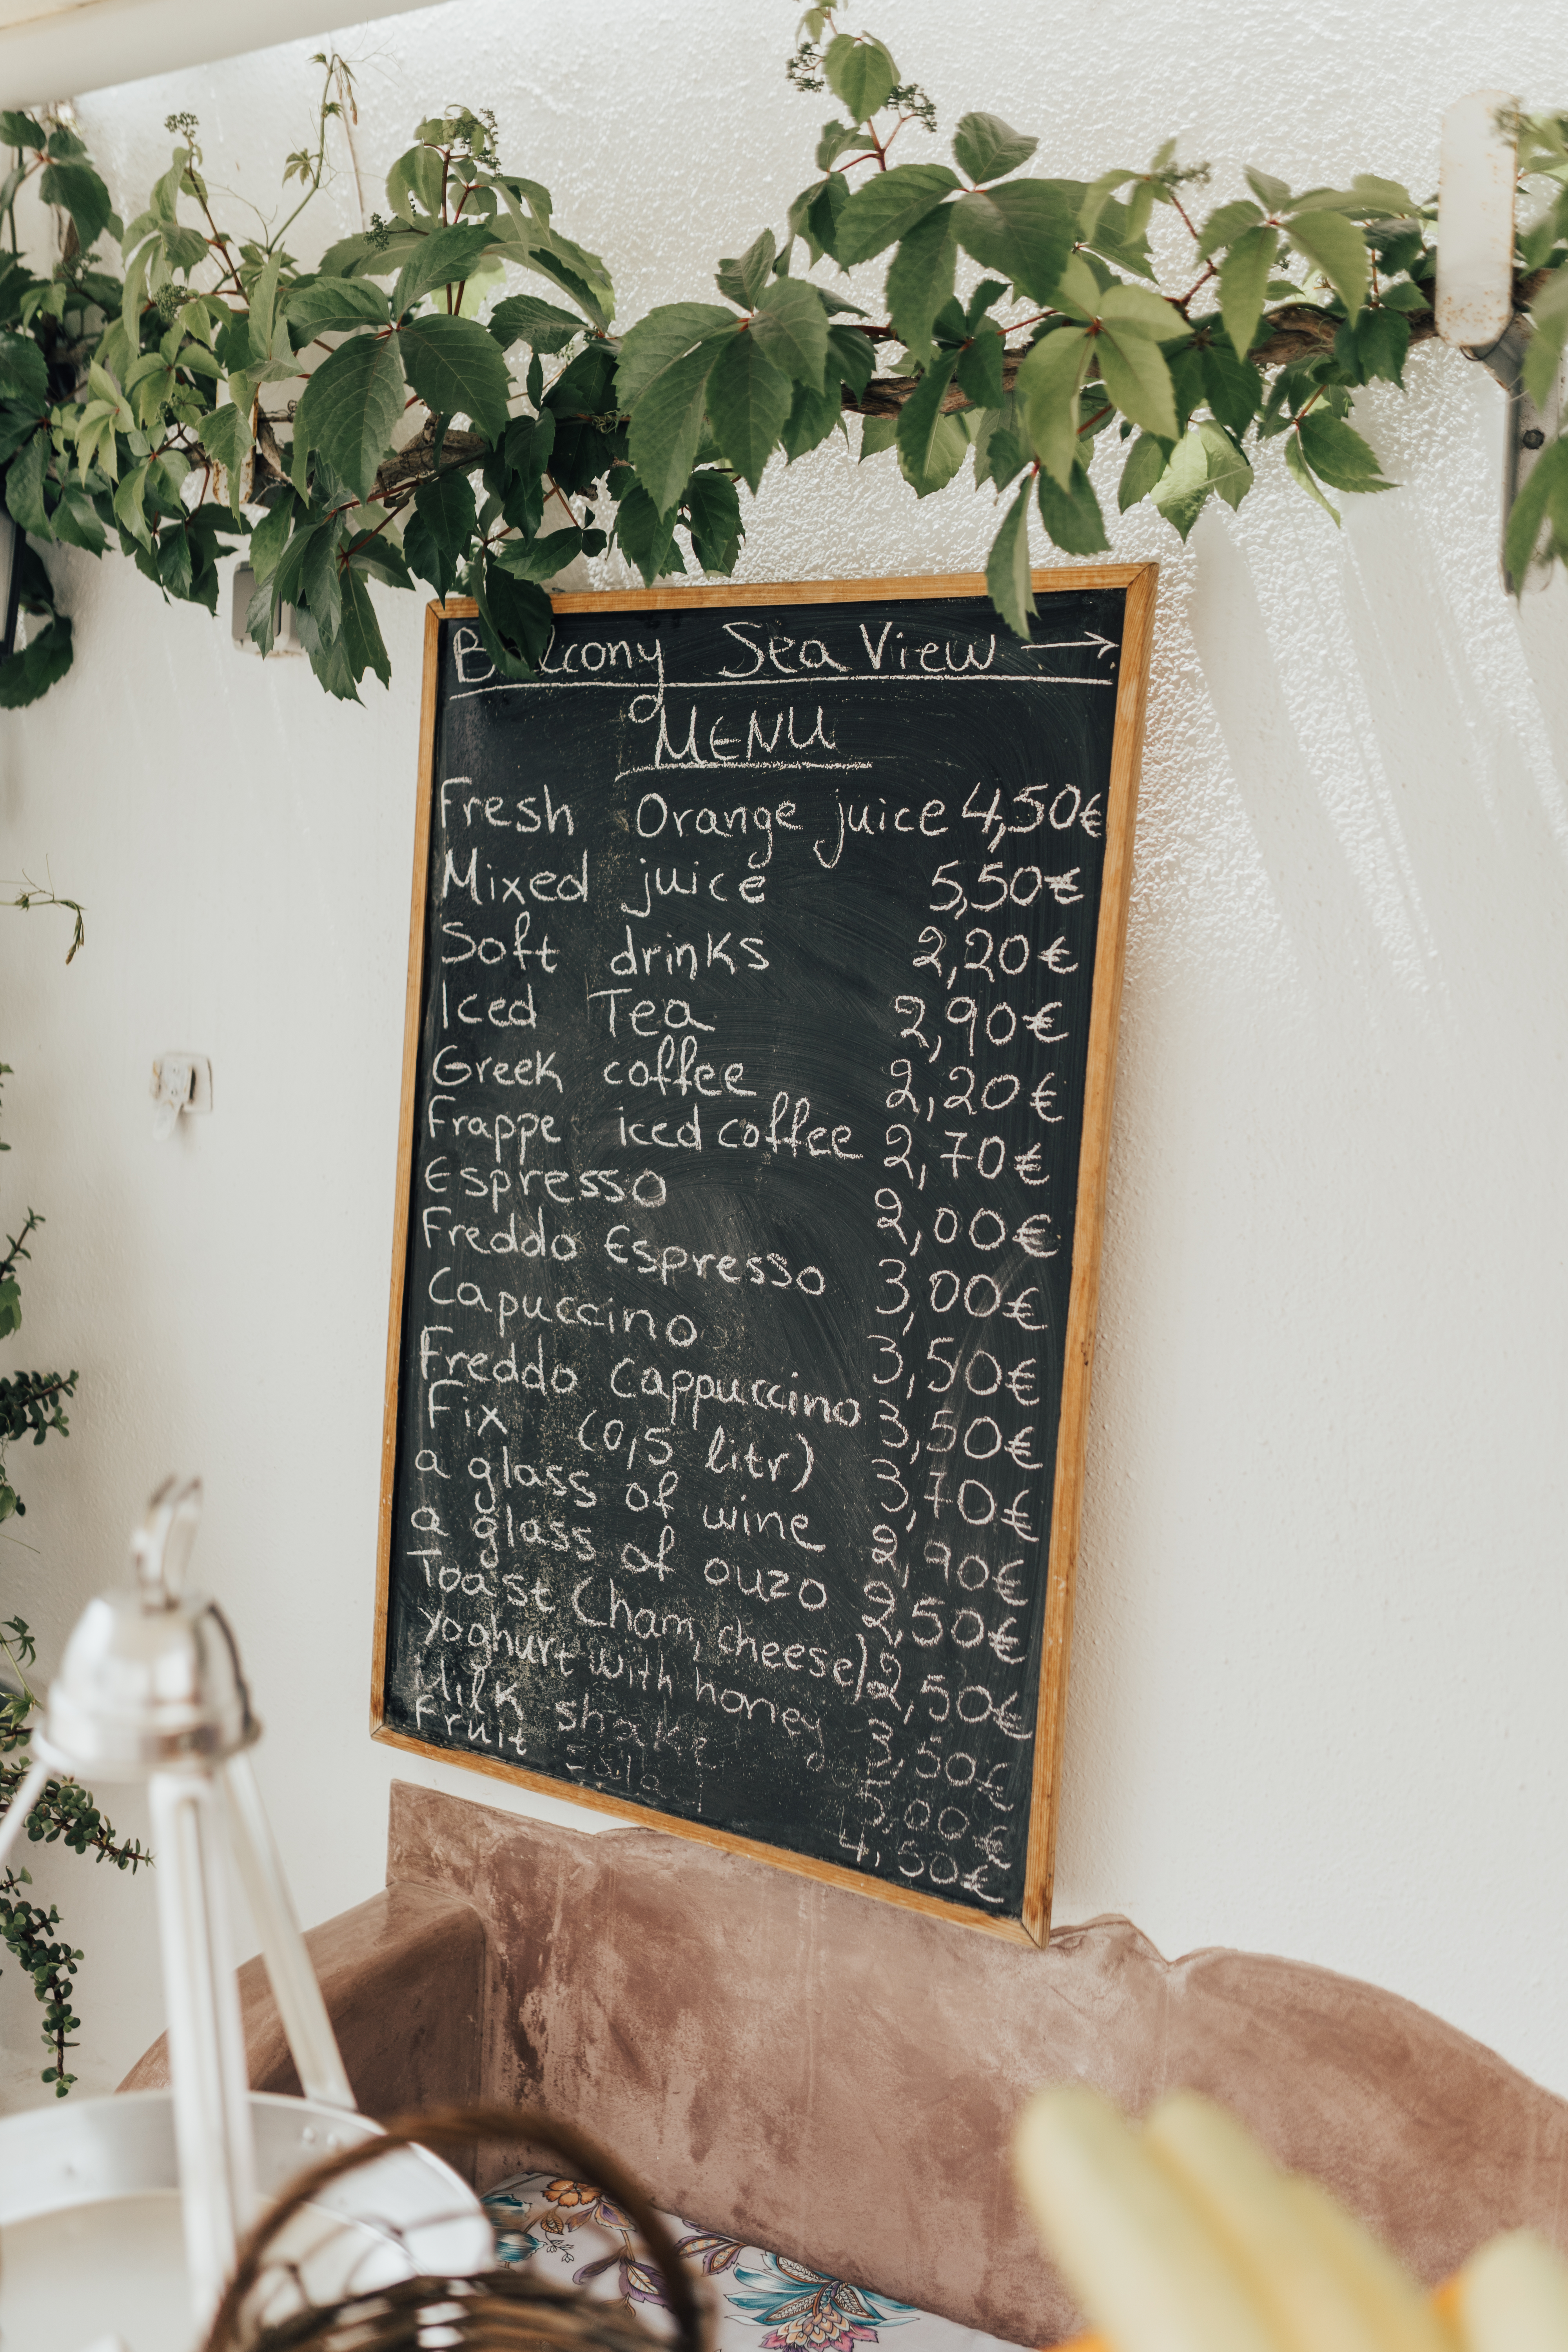 Balcony Sea View →
MENU
Fresh Orange juice 4,50€
Mixed juice 5,50€
Soft drinks 2,20€
Iced Tea 2,90€
Greek coffee 2,20€
Frappe iced coffee 2,70€
Espresso 2,00€
Freddo Espresso 3,00€
Capuccino 3,50€
Freddo Cappuccino 3,50€
Fix (0,5 litr) 3,70€
a glass of wine 2,90€
a glass of ouzo 2,50€
Toast (ham, cheese) 2,50€
Yoghurt with honey 3,50€
Milk shake 5,00€
Fruit salad 4,50€